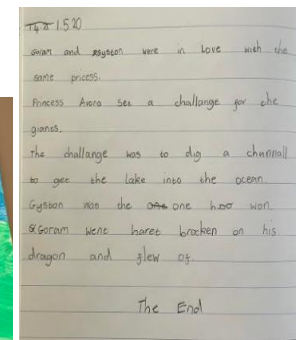 1.5.20
Goram and Gyston were in Love with the
same pricess.
Princess Avora set a challange for the
giants.
The challange was to dig a channall
to get the lake into the ocean.
Gyston was the one hoo won.
Goram went haret brocken on his
dragon and flew of.
The End